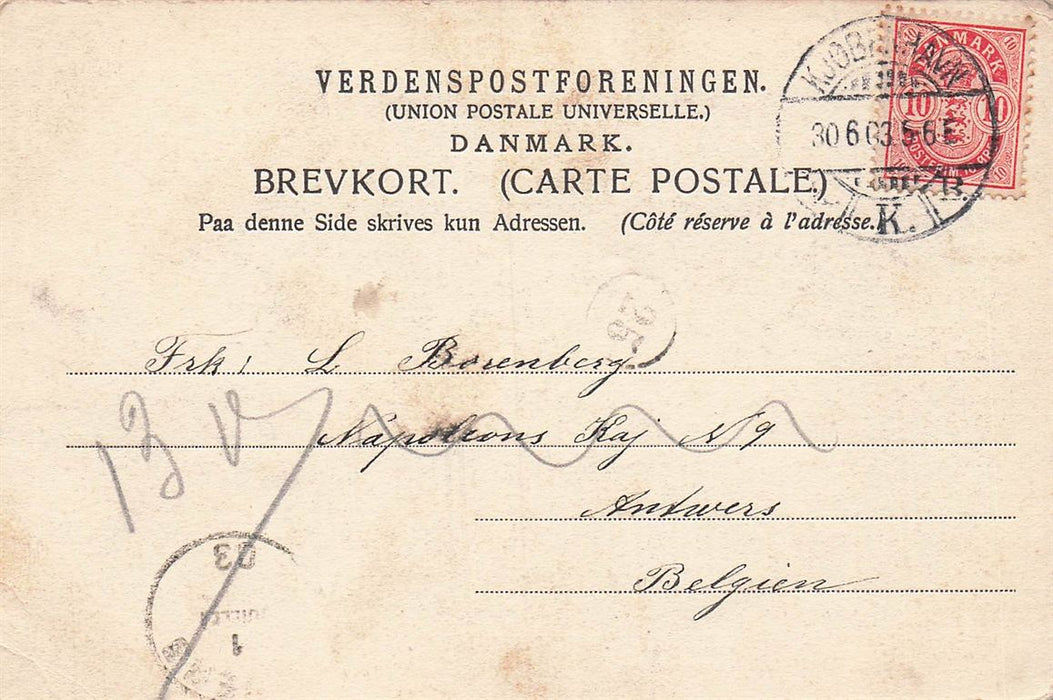 VERDENSPOSTFORENINGEN.
(UNION POSTALE UNIVERSELLE.)
DANMARK.
BREVKORT. (CARTE POSTALE.)
Paa denne Side skrives kun Adressen. (Côté réserve à l'adresse.)
DANMARK
10 10
KJØBENHAVN
30 6 03 5-6 E
K. B.
25
Frk: L Borenberg
Napoleons Kaj No 9
Antwers
Belgien
13 V
03
JUILLET
1